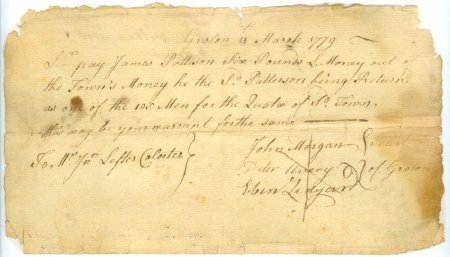 Groton 11 March 1779
Sr pay James Pattison Six Pounds L Money out of
the Town's Money he the Sd Patterson being Returnd
as one of the 106 Men for the Quota of Sd Town,
this may be your warrant for the same
John Morgan
To Mr Jno Lester Coloctor
Avery of Groton
Eben Ledyard